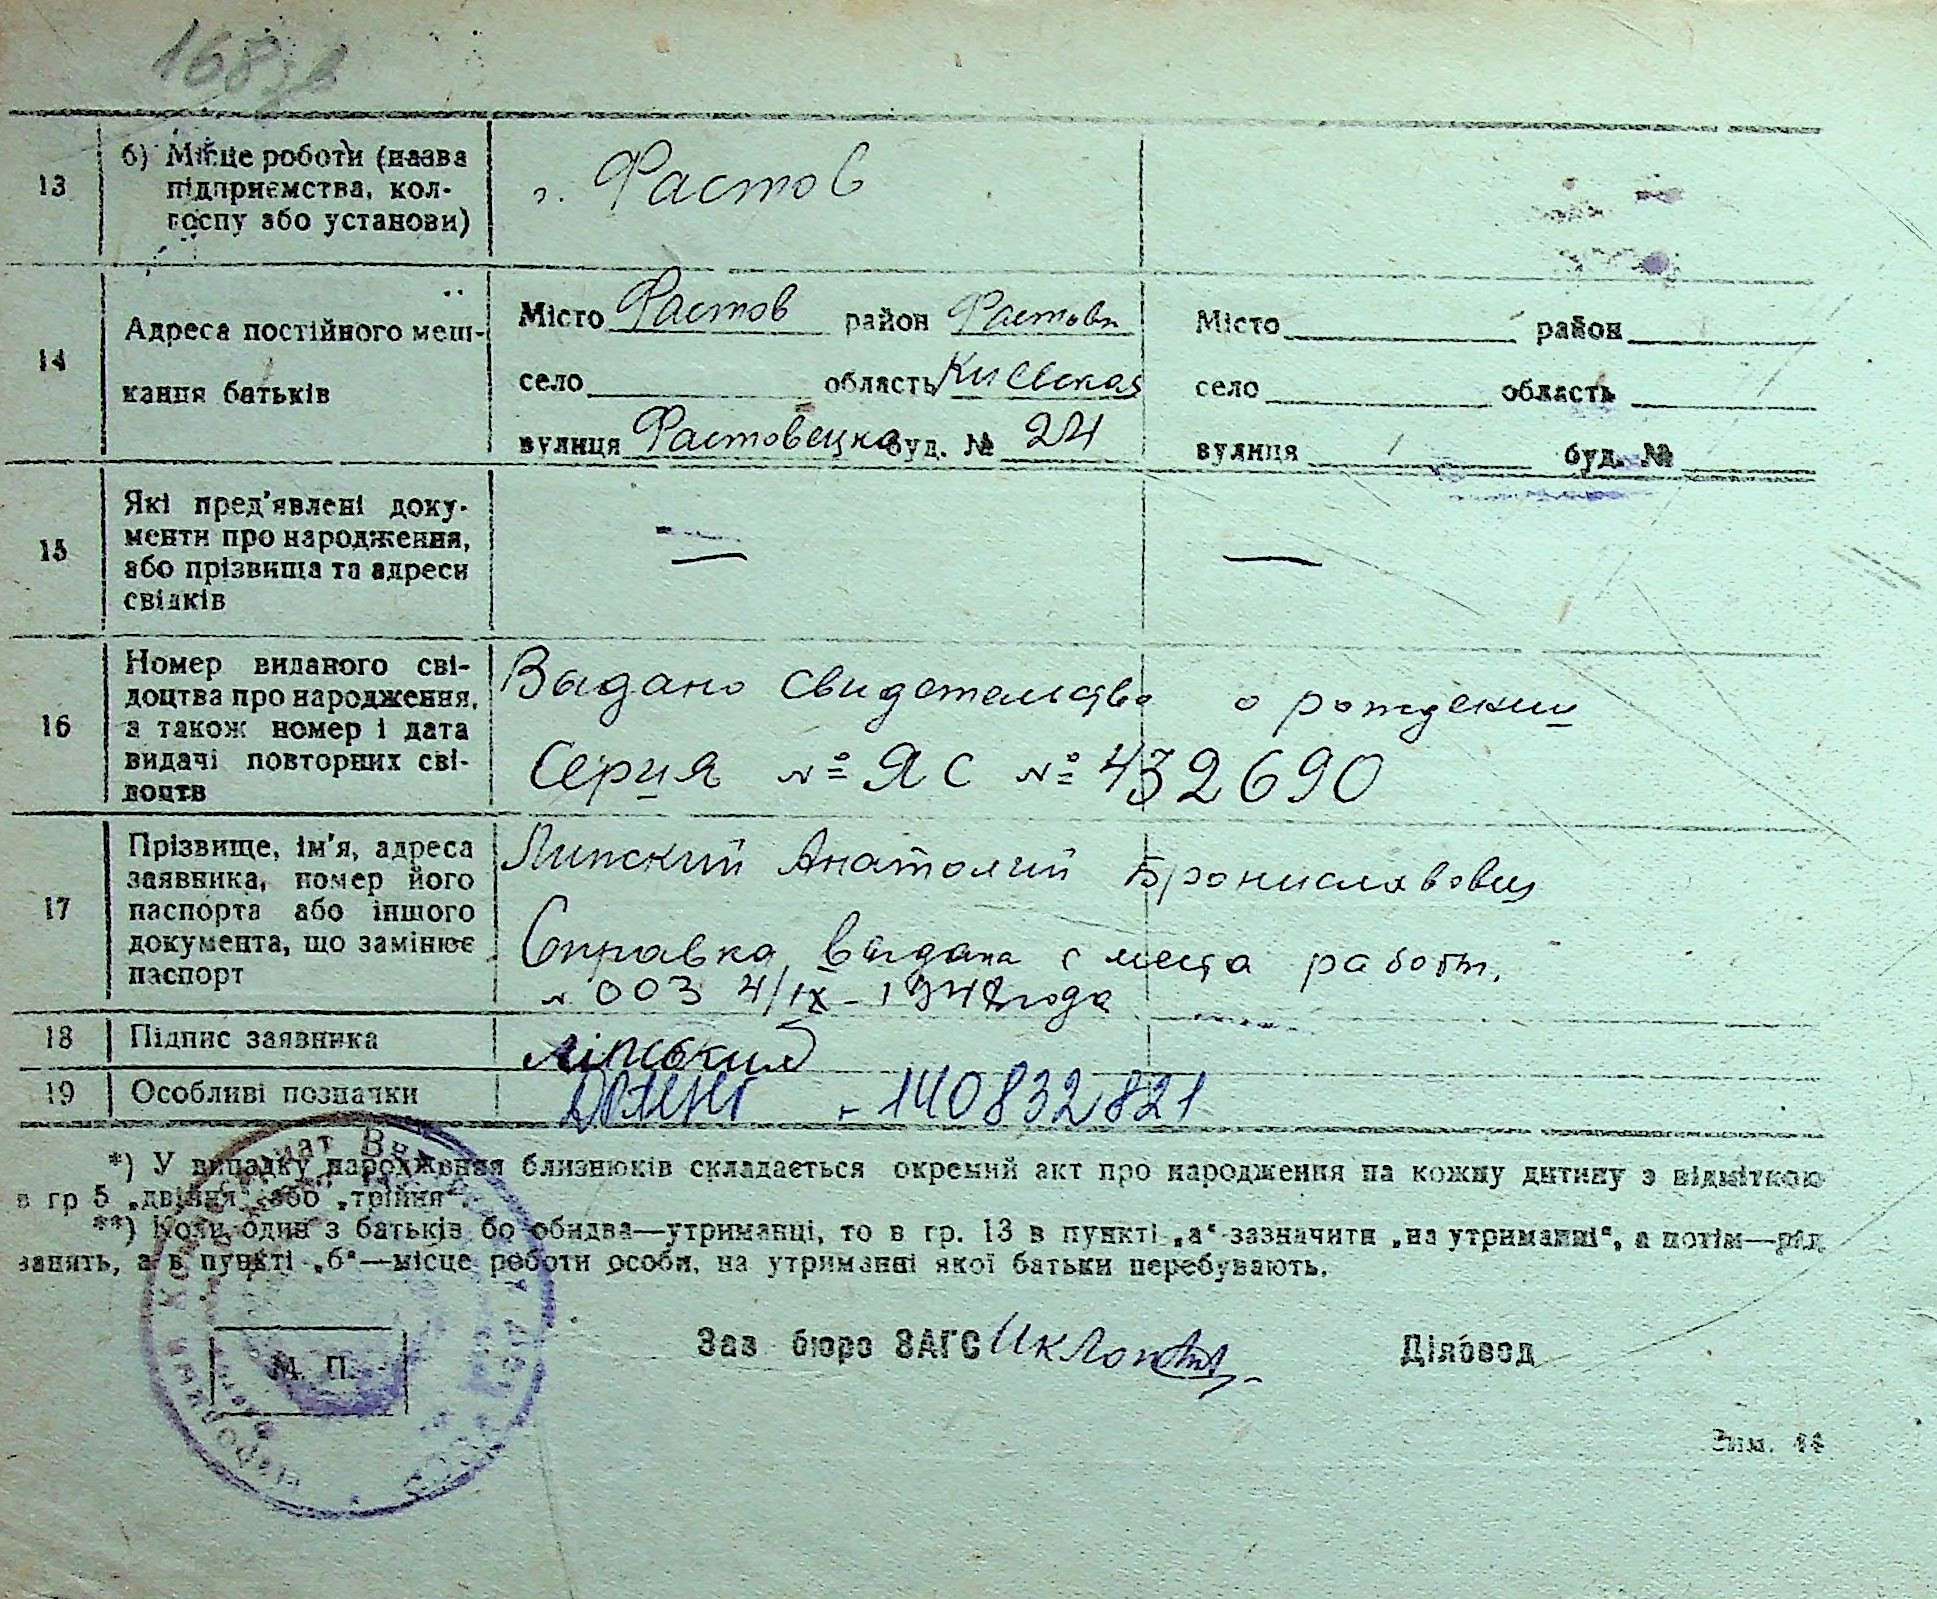 168 зв
13 б) Місце роботи (назва підприємства, кол-
госпу або установи)
г. Фастов
14 Адреса постійного меш-
кання батьків
Місто Фастов район Фастовк
село область Киевская
вулиця Фастовецка буд. № 24
Місто район
село область
вулиця буд. №
15 Які пред'явлені доку-
менти про народження,
або прізвища та адреси
свідків
— —
16 Номер виданого сві-
доцтва про народження,
а також номер і дата
видачі повторних сві-
доцтв
Выдано свидетельство о рождении
Серия № ЯС № 432690
17 Прізвище, ім'я, адреса
заявника, номер його
паспорта або іншого
документа, що замінює
паспорт
Липский Анатолий Брониславович
Справка выдана с места работы,
№ 003 4/IX - 1947 года
18 Підпис заявника
Ліпський
19 Особливі позначки
140832821
*) У випадку народження близнюків складається окремий акт про народження на кожну дитину з відміткою
в гр 5 „двійня“ або „трійня“.
**) Коли один з батьків бо обидва—утриманці, то в гр. 13 в пункті „а“ зазначити „на утриманні“, а потім—рід
занять, а в пункті „б“—місце роботи особи, на утриманні якої батьки перебувають.
М. П.
Зав бюро ЗАГС
Діловод
Зим. 44